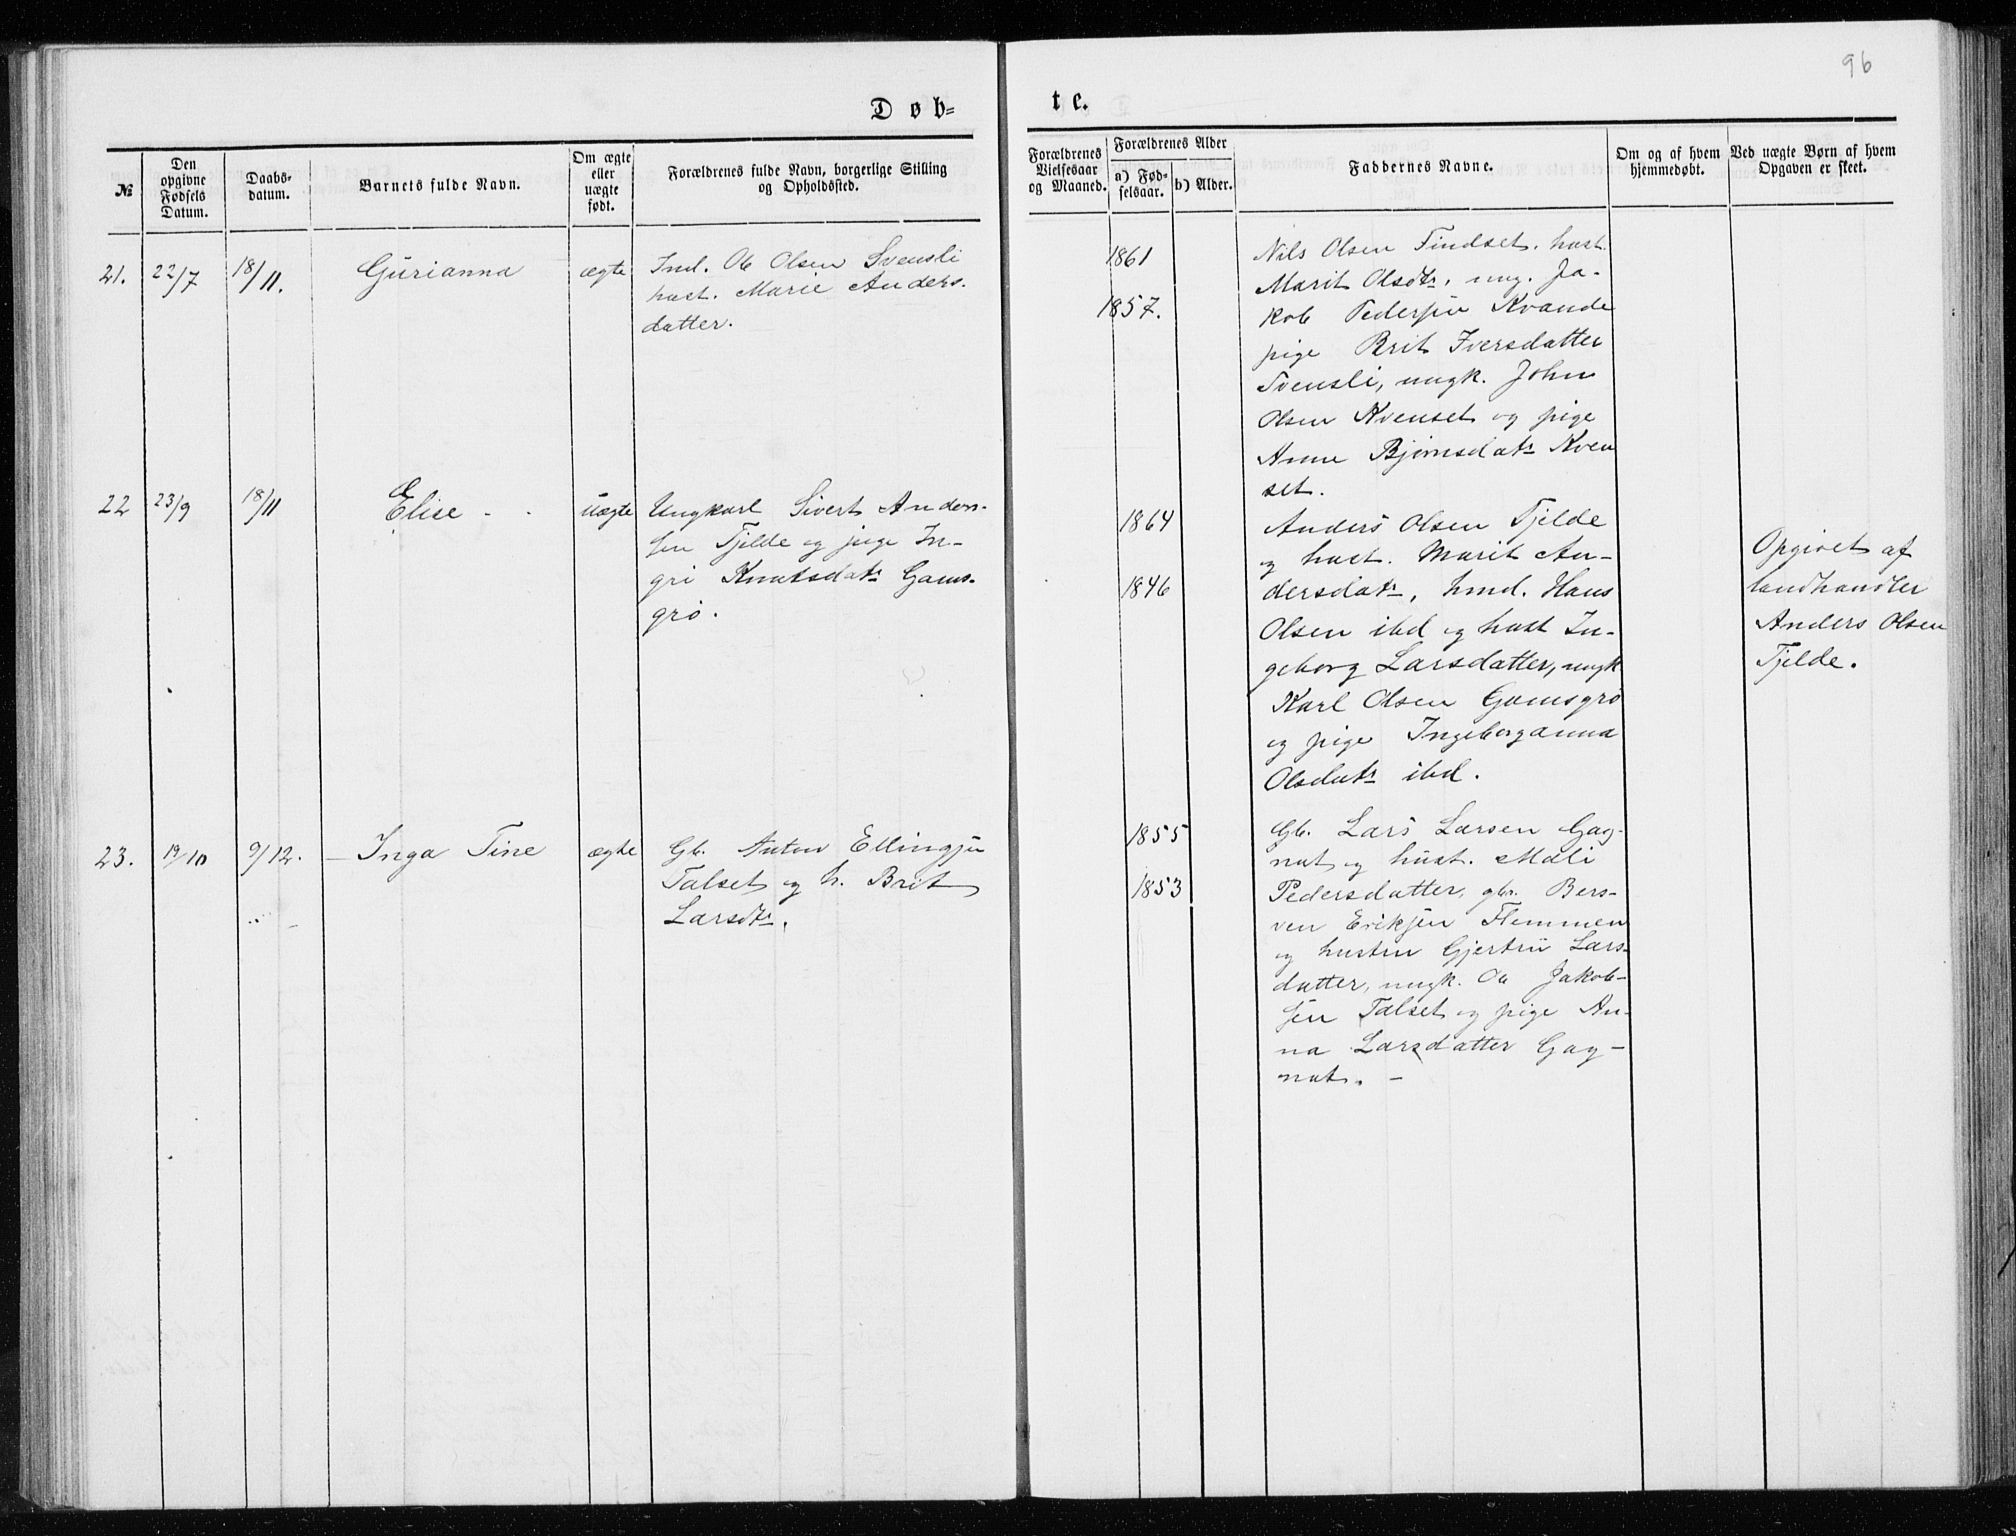 96
Døb-
te.
№
Den
opgivne
Fødsels
Datum.
Daabs-
datum.
Barnets fulde Navn.
Om ægte
eller
uægte
født.
Forældrenes fulde Navn, borgerlige Stilling
og Opholdssted.
Forældrenes
Vielsesaar
og Maaned.
Forældrenes Alder
a) Fød-
selsaar.
b) Alder.
Faddernes Navne.
Om og af hvem
hjemmedøbt.
Ved uægte Børn af hvem
Opgaven er skeet.
21.
22/7
18/11.
Gurianna
ægte
Ind. Ole Olsen Svensli
hust. Marie Anders-
datter.
1861
1857.
Nils Olsen Tindset, hust.
Marit Olsdtr, ung. Ja-
kob Pedersen Kvande
pige Brit Iversdatter
Svensli, ungk. John
Olsen Kvenset og pige
Anne Bjørnsdatr Kven
set.
22
23/9
18/11
Elise
uægte
Ungkarl Sivert Ander-
sen Tjelde og pige In-
gri Knutsdatr Gams-
grø.
1864
1846
Anders Olsen Tjelde
og hust. Marit An-
dersdatr, hmd. Hans
Olsen ibd og hust In-
geborg Larsdatter, ungk
Karl Olsen Gamsgrø
og pige Ingeborganna
Olsdatr ibd.
Opgivet af
landhandler
Anders Olsen
Tjelde.
23.
19/10
9/12.
Inga Tine
ægte
Gb. Anton Ellingsen
Talset og h. Brit
Larsdtr.
1855
1853
Gb. Lars Larsen Gag-
nat og hust. Mali
Pedersdatter, gbr. Bers-
ven Eriksen Flemmen
og hustru Gjertru Lars-
datter, ungk. Ole Jakob-
sen Talset og pige An-
na Larsdatter Gag-
nat. -